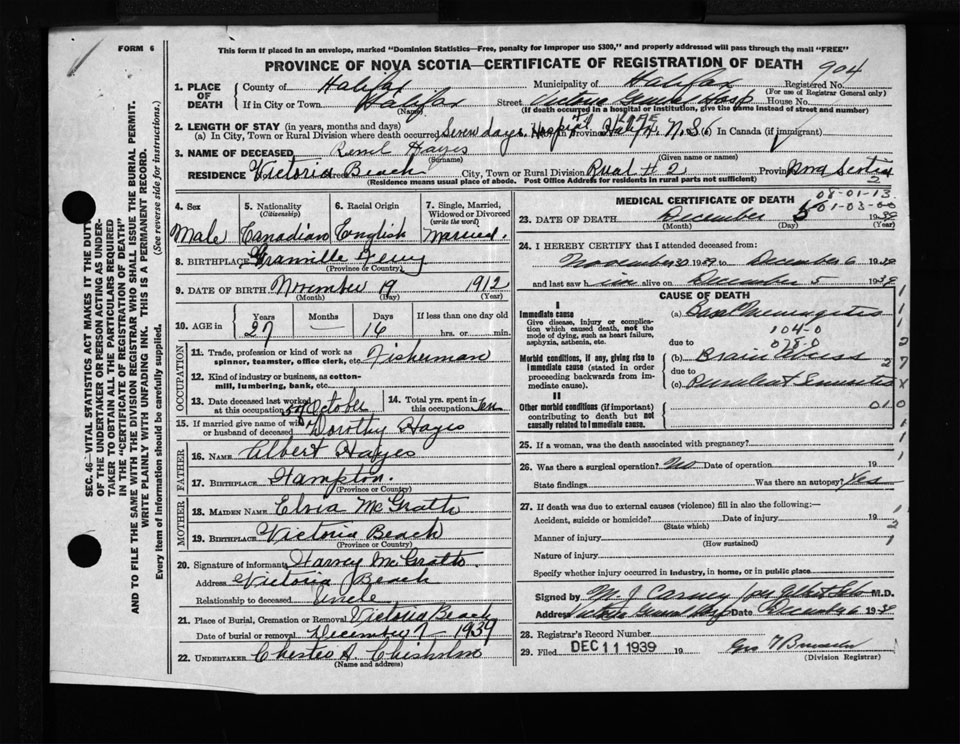 FORM 6
This form if placed in an envelope, marked "Dominion Statistics—Free, penalty for improper use $300," and properly addressed will pass through the mail "FREE"
PROVINCE OF NOVA SCOTIA—CERTIFICATE OF REGISTRATION OF DEATH
904
SEC. 46-VITAL STATISTICS ACT MAKES IT THE DUTY
OF THE UNDERTAKER OR PERSON ACTING AS UNDER-
TAKER TO OBTAIN ALL THE PARTICULARS REQUIRED
IN THE "CERTIFICATE OF REGISTRATION OF DEATH"
AND TO FILE THE SAME WITH THE DIVISION REGISTRAR WHO SHALL ISSUE THE BURIAL PERMIT.
WRITE PLAINLY WITH UNFADING INK. THIS IS A PERMANENT RECORD.
Every item of Information should be carefully supplied. (See reverse side for instructions.)
1. PLACE OF DEATH
County of Halifax Municipality of Halifax Registered No.
(For use of Registrar General only)
If in City or Town Halifax Street Victoria General Hosp House No.
(Name) (If death occurred in a hospital or institution, give the name instead of street and number)
2. LENGTH OF STAY (in years, months and days)
(a) In City, Town or Rural Division where death occurred Seven days Hospital Province Halifax, N.S. In Canada (if immigrant)
LIFE
3. NAME OF DECEASED Hayes
(Surname) (Given name or names)
RESIDENCE Victoria Beach City, Town or Rural Division Rural # 2 Province Nova Scotia
(Residence means usual place of abode. Post Office Address for residents in rural parts not sufficient)
2
4. Sex
Male
5. Nationality
(Citizenship)
Canadian
6. Racial Origin
English
7. Single, Married, Widowed or Divorced
(write the word)
Married
8. BIRTHPLACE Granville Ferry
(Province or Country)
9. DATE OF BIRTH November 19 1912
(Month) (Day) (Year)
10. AGE in
Years Months Days If less than one day old
27 — 16 hrs. or min.
OCCUPATION
11. Trade, profession or kind of work as spinner, teamster, office clerk, etc. Fisherman
12. Kind of industry or business, as cotton-mill, lumbering, bank, etc.
13. Date deceased last worked at this occupation October
14. Total yrs. spent in this occupation Ten
15. If married give name of wife or husband of deceased Dorothy Hayes
FATHER
16. NAME Albert Hayes
17. BIRTHPLACE Hampton
(Province or Country)
MOTHER
18. MAIDEN NAME Elvia McGrath
19. BIRTHPLACE Victoria Beach
(Province or Country)
20. Signature of informant Harvey McGrath
Address Victoria Beach
Relationship to deceased Uncle
21. Place of Burial, Cremation or Removal Victoria Beach
Date of burial or removal December 7 - 1939
22. UNDERTAKER Chester A. Chisholm
(Name and address)
MEDICAL CERTIFICATE OF DEATH
08-01-13
01-03-00
23. DATE OF DEATH December 5 1939
(Month) (Day) (Year)
24. I HEREBY CERTIFY that I attended deceased from:
November 30 1939 to December 6 1939
and last saw him alive on December 5 1939
CAUSE OF DEATH
I
Immediate cause
Give disease, injury or complication which caused death, not the mode of dying, such as heart failure, asphyxia, asthenia, etc.
(a) Basal Meningitis
104-0
due to 078-0
Morbid conditions, if any, giving rise to immediate cause (stated in order proceeding backwards from immediate cause).
(b) Brain Abscess
due to
(c) Purulent Sinusitis
II
Other morbid conditions (if important) contributing to death but not causally related to immediate cause.
010
25. If a woman, was the death associated with pregnancy?
26. Was there a surgical operation? No Date of operation 19
State findings Was there an autopsy? Yes
27. If death was due to external causes (violence) fill in also the following:—
Accident, suicide or homicide? Date of injury 19
(State which)
Manner of injury
(How sustained)
Nature of injury
Specify whether injury occurred in industry, in home, or in public place
Signed by M. J. Carney M.D.
Address Victoria General Hosp Date December 6 1939
28. Registrar's Record Number
29. Filed DEC 11 1939 19
(Division Registrar)